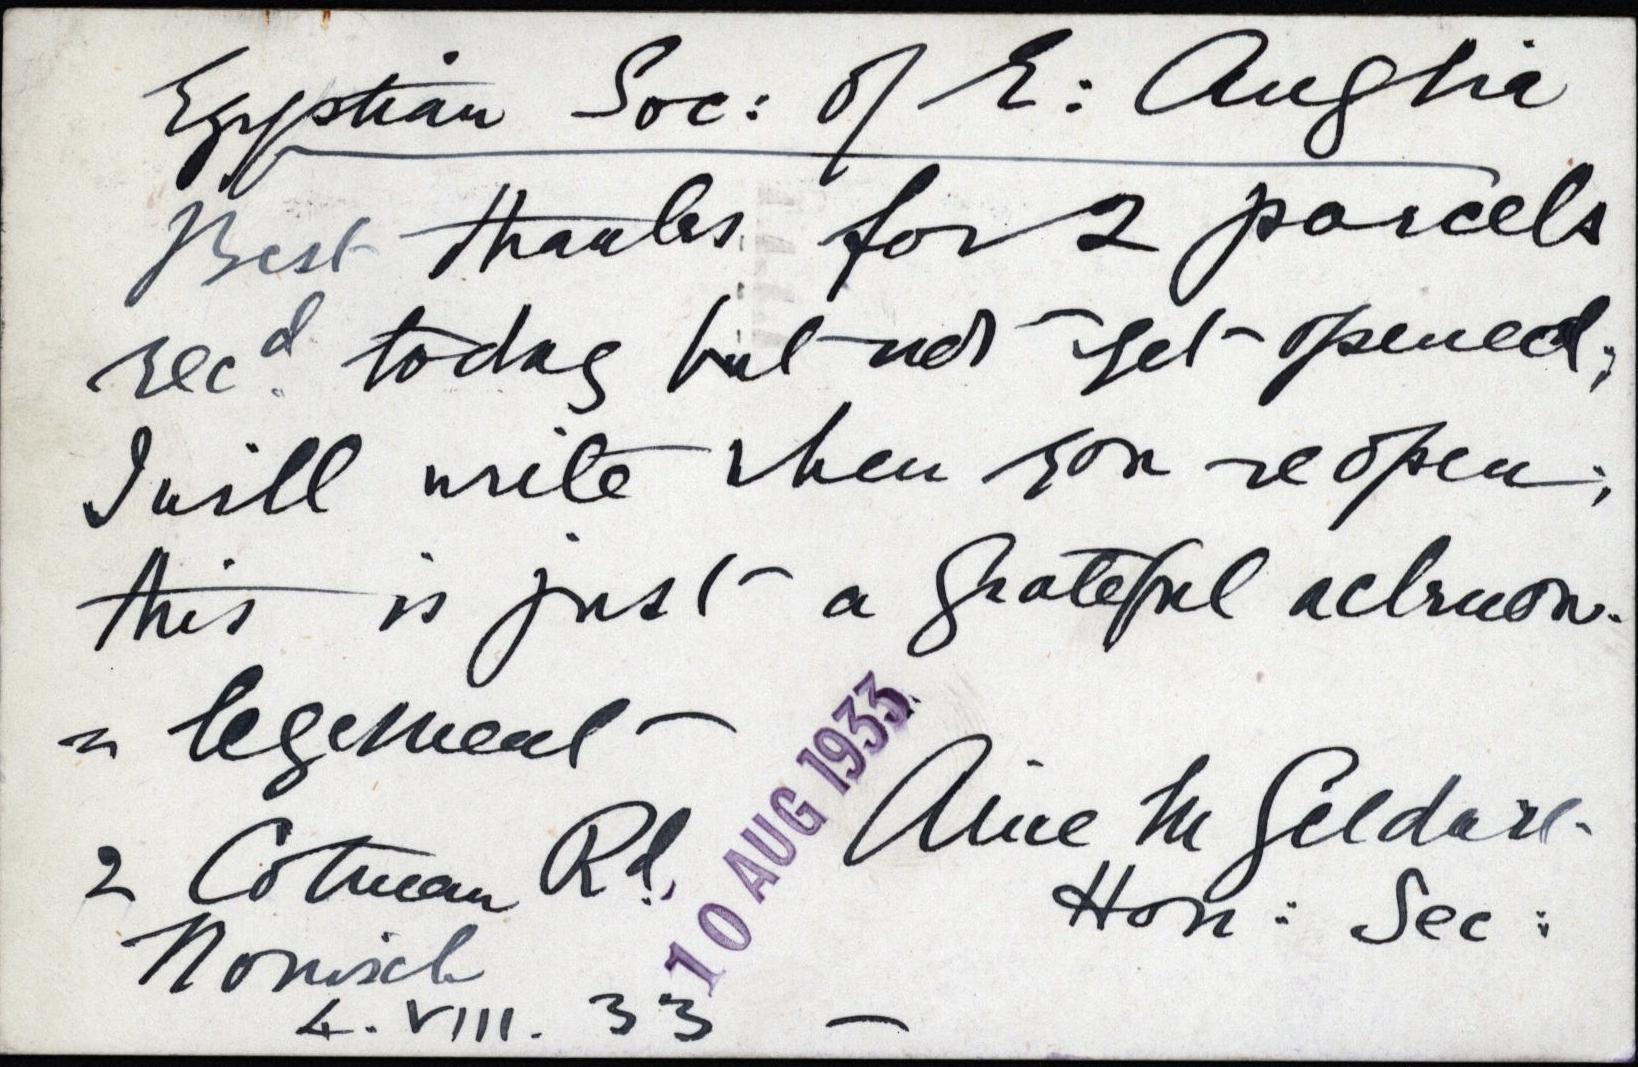 Egyptian Soc: of E: Anglia
Best thanks for 2 parcels
recd. today but not yet opened;
I will write when you reopen;
this is just a grateful acknow-
-legement
10 AUG 1933
Alice M Geldart
Hon: Sec:
2 Cotman Rd.,
Norwich
4. VIII. 33